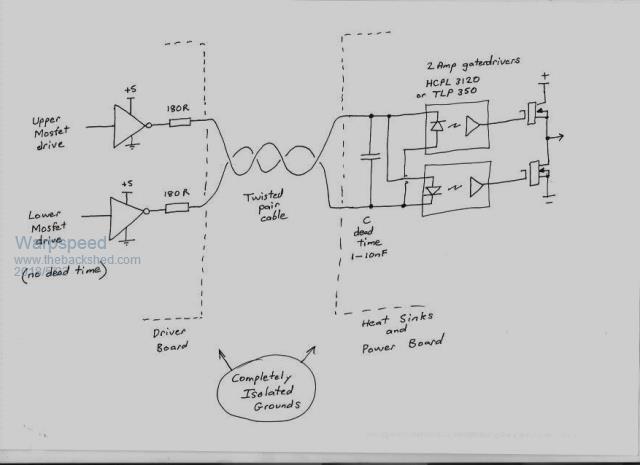 2 Amp gatedrivers
HCPL 3120
or TLP 350
+5
180R
+
Upper
Mosfet
drive
+5
180R
Twisted
pair
cable
Lower
Mosfet
drive
(no dead time)
C
dead
time
1-10nF
Warpspeed
www.thebackshed.com
Driver
Board
Heat Sinks
and
Power Board
Completely
Isolated
Grounds